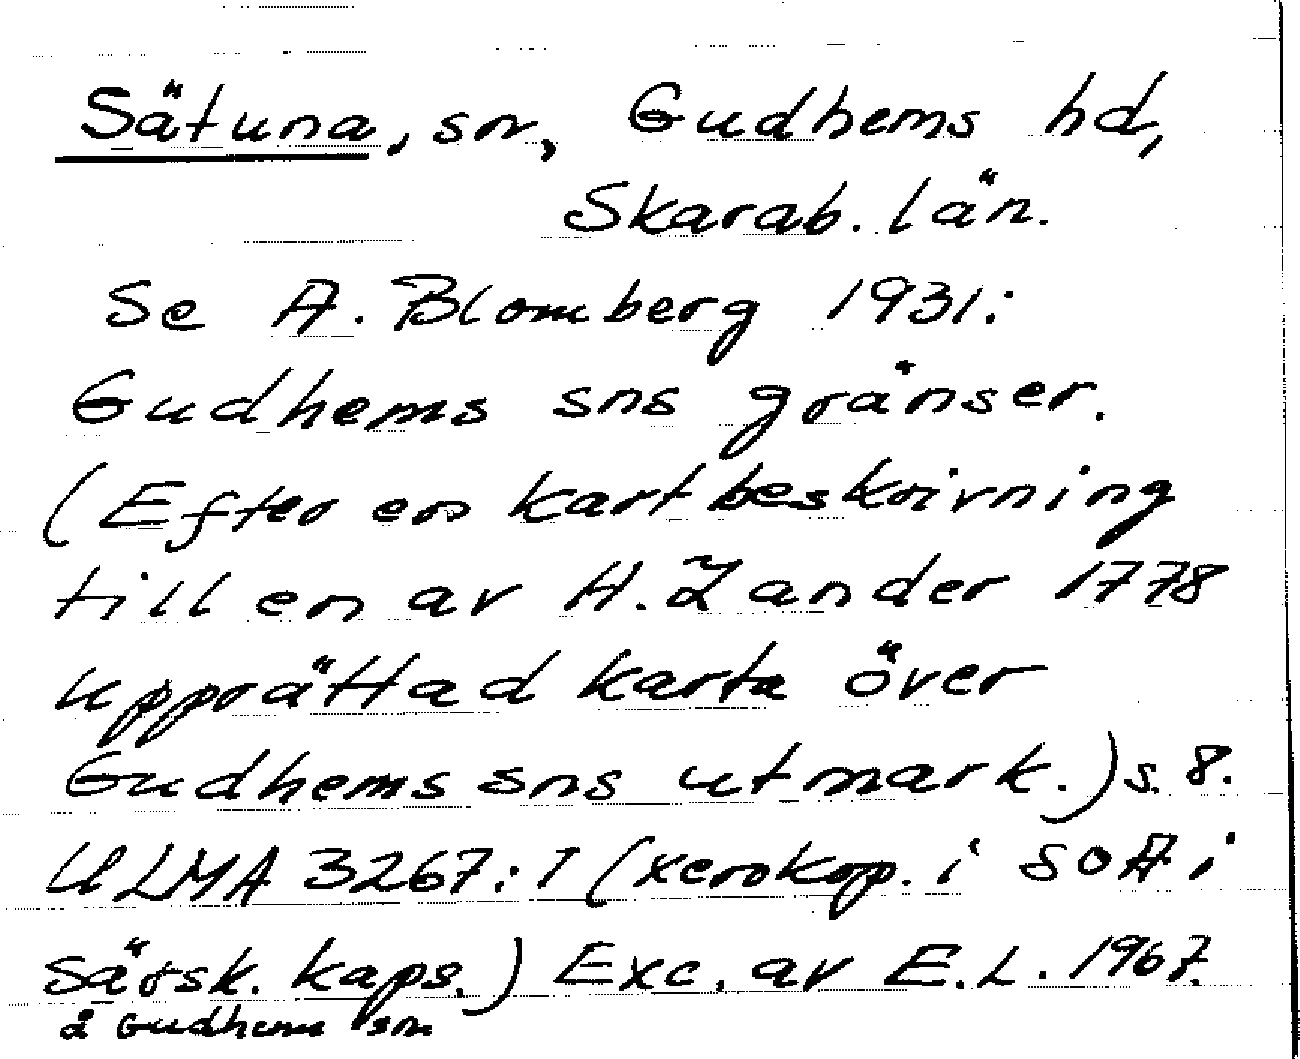 Sätuna, sn, Gudhems hd,
Skarab. län.
Se A. Blomberg 1931:
Gudhems sns gränser.
(Efter en kartbeskrivning
till en av H. Zander 1778
upprättad karta över
Gudhems sns utmark.) s. 8.
ULMA 3267:1 (xerokop. i SOA i
särsk. kaps.) Exc. av E.L. 1967.
å Gudhems sn